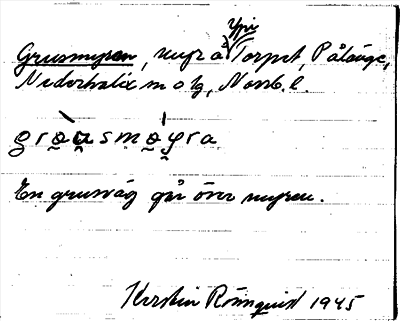 Ytre
Grusmyren, myr å Torpet, Pålänge,
Nederkalix m o lg, Norrb. l.
grəʉsmøyra
En grusväg går över myren.
Kerstin Rönnquist 1945